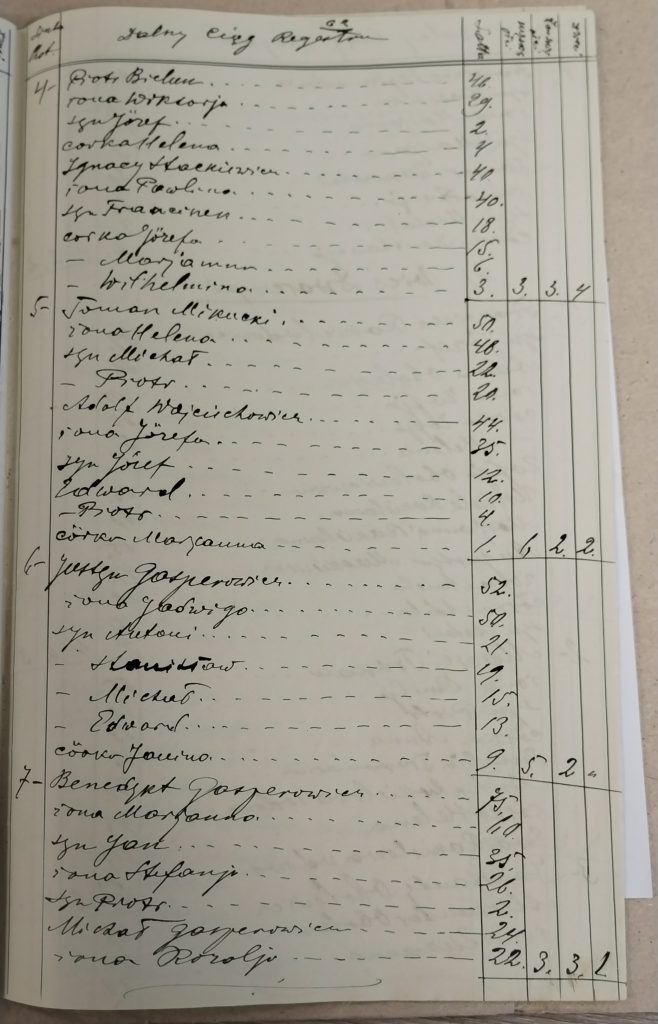 Dalny Cięg Regestru
latta
4- Piotr Bielun 46.
żona Wiktorja 29.
syn Józef 2.
corka Helena 4
Ignacy Stackiewicz 40
żona Pawlina 40.
syn Franciszek 18.
corka Józefa 15.
- Marjanna 6.
- Wilhelmina 3. 3. 3. 4
5- Mikucki. 50.
żona Helena 48.
syn Michał 22.
- Piotr 20.
Adolf Wojciechowicz 44.
żona Józefa 35.
syn Józef 12.
Edward 10.
- Piotr 4.
córka Marjanna 1. 6, 2. 2.
6,- Justyn Gasperowicz 52.
żona Jadwiga 50.
syn Antoni 21.
- Stanisław 19.
- Michał 15.
- Edward 13.
córka Janina 9. 5. 2 "
7- Benedykt Gasperowicz 75.
żona Marjanna 60
syn Jan 35.
żona Stefanja 26.
syn Piotr 2.
Michał Gasperowicz 24.
żona Rozalja 22. 3. 3. 1